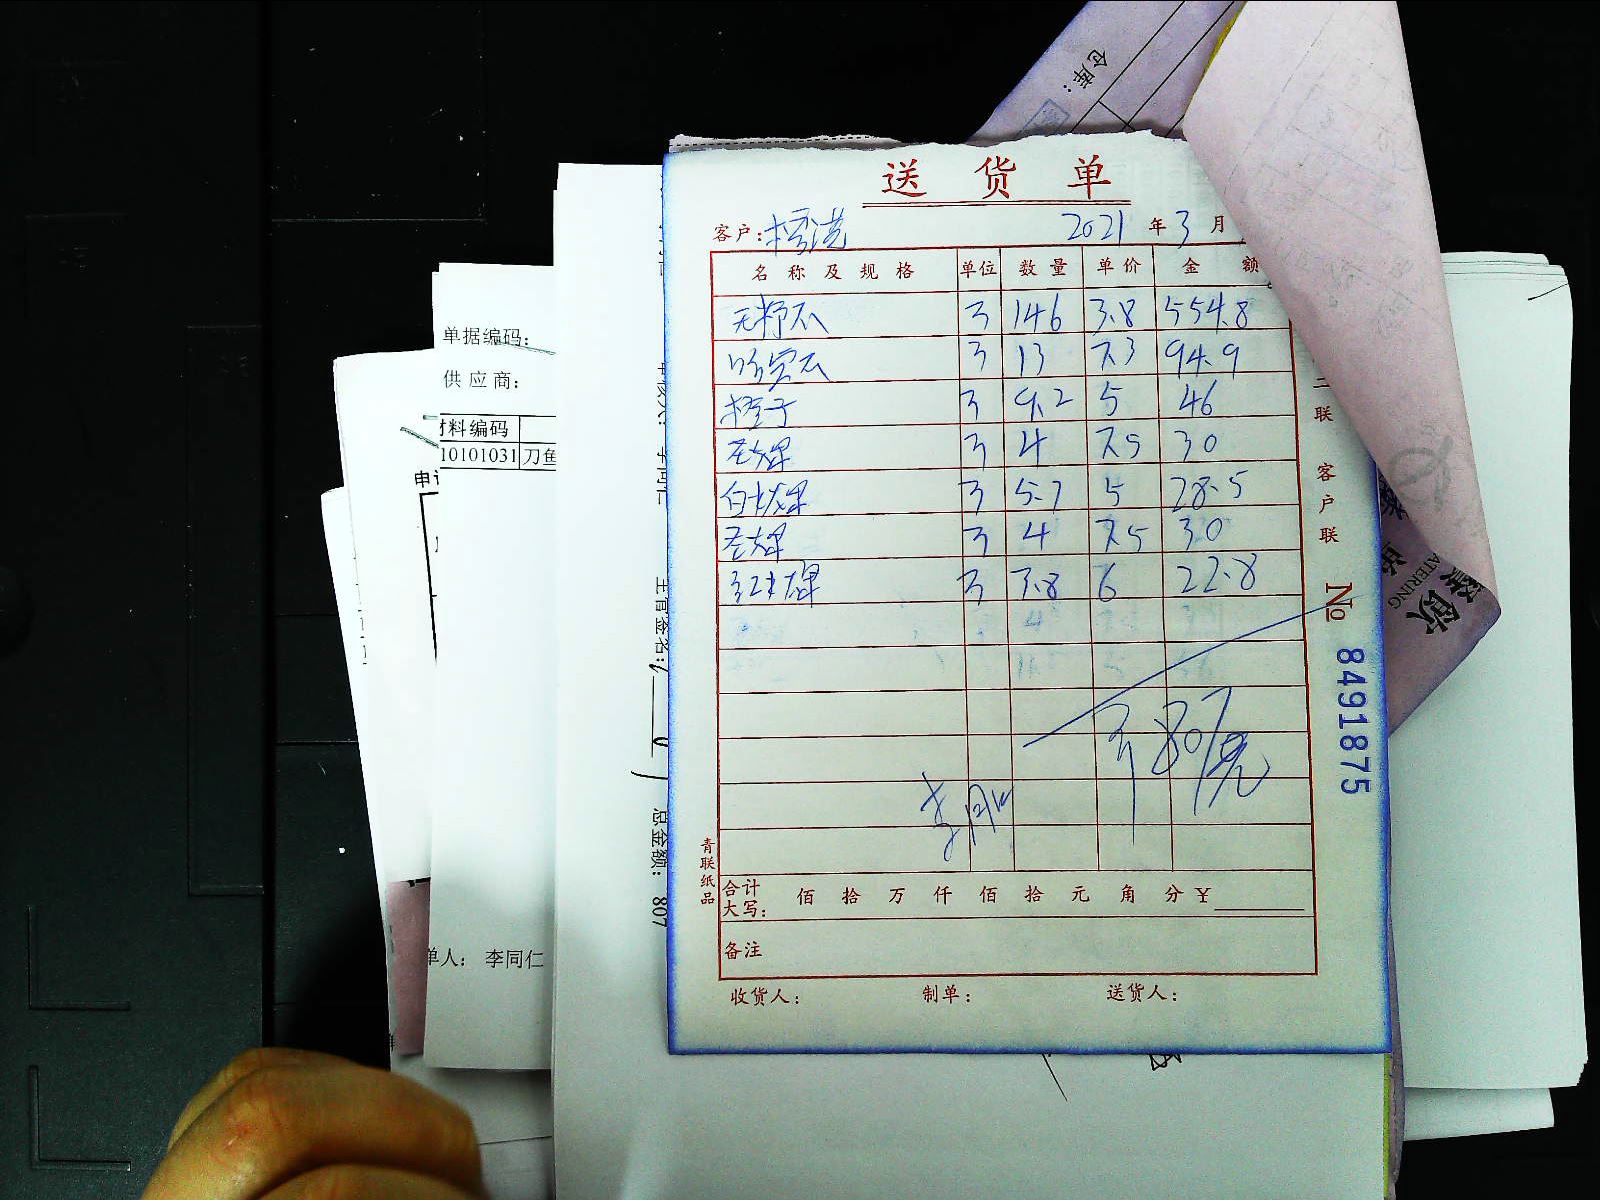 仓库:
送货单
客户: 2021 年 3 月
名称及规格 单位 数量 单价 金额
无籽瓜 斤 146 3.8 554.8
哈密瓜 斤 13 7.3 94.9
橙子 斤 9.2 5 46
圣女果 斤 4 7.5 30
白火龙果 斤 5.7 5 28.5
圣女果 斤 4 7.5 30
红火龙果 斤 3.8 6 22.8
807元
合计
大写: 佰 拾 万 仟 佰 拾 元 角 分 ¥
备注
收货人: 制单: 送货人:
二联 客户联
No 8491875
青联纸品
单据编码:
供应商:
材料编码
10101031 刀鱼
单人: 李同仁
主管签名:
总金额: 807
ATERING